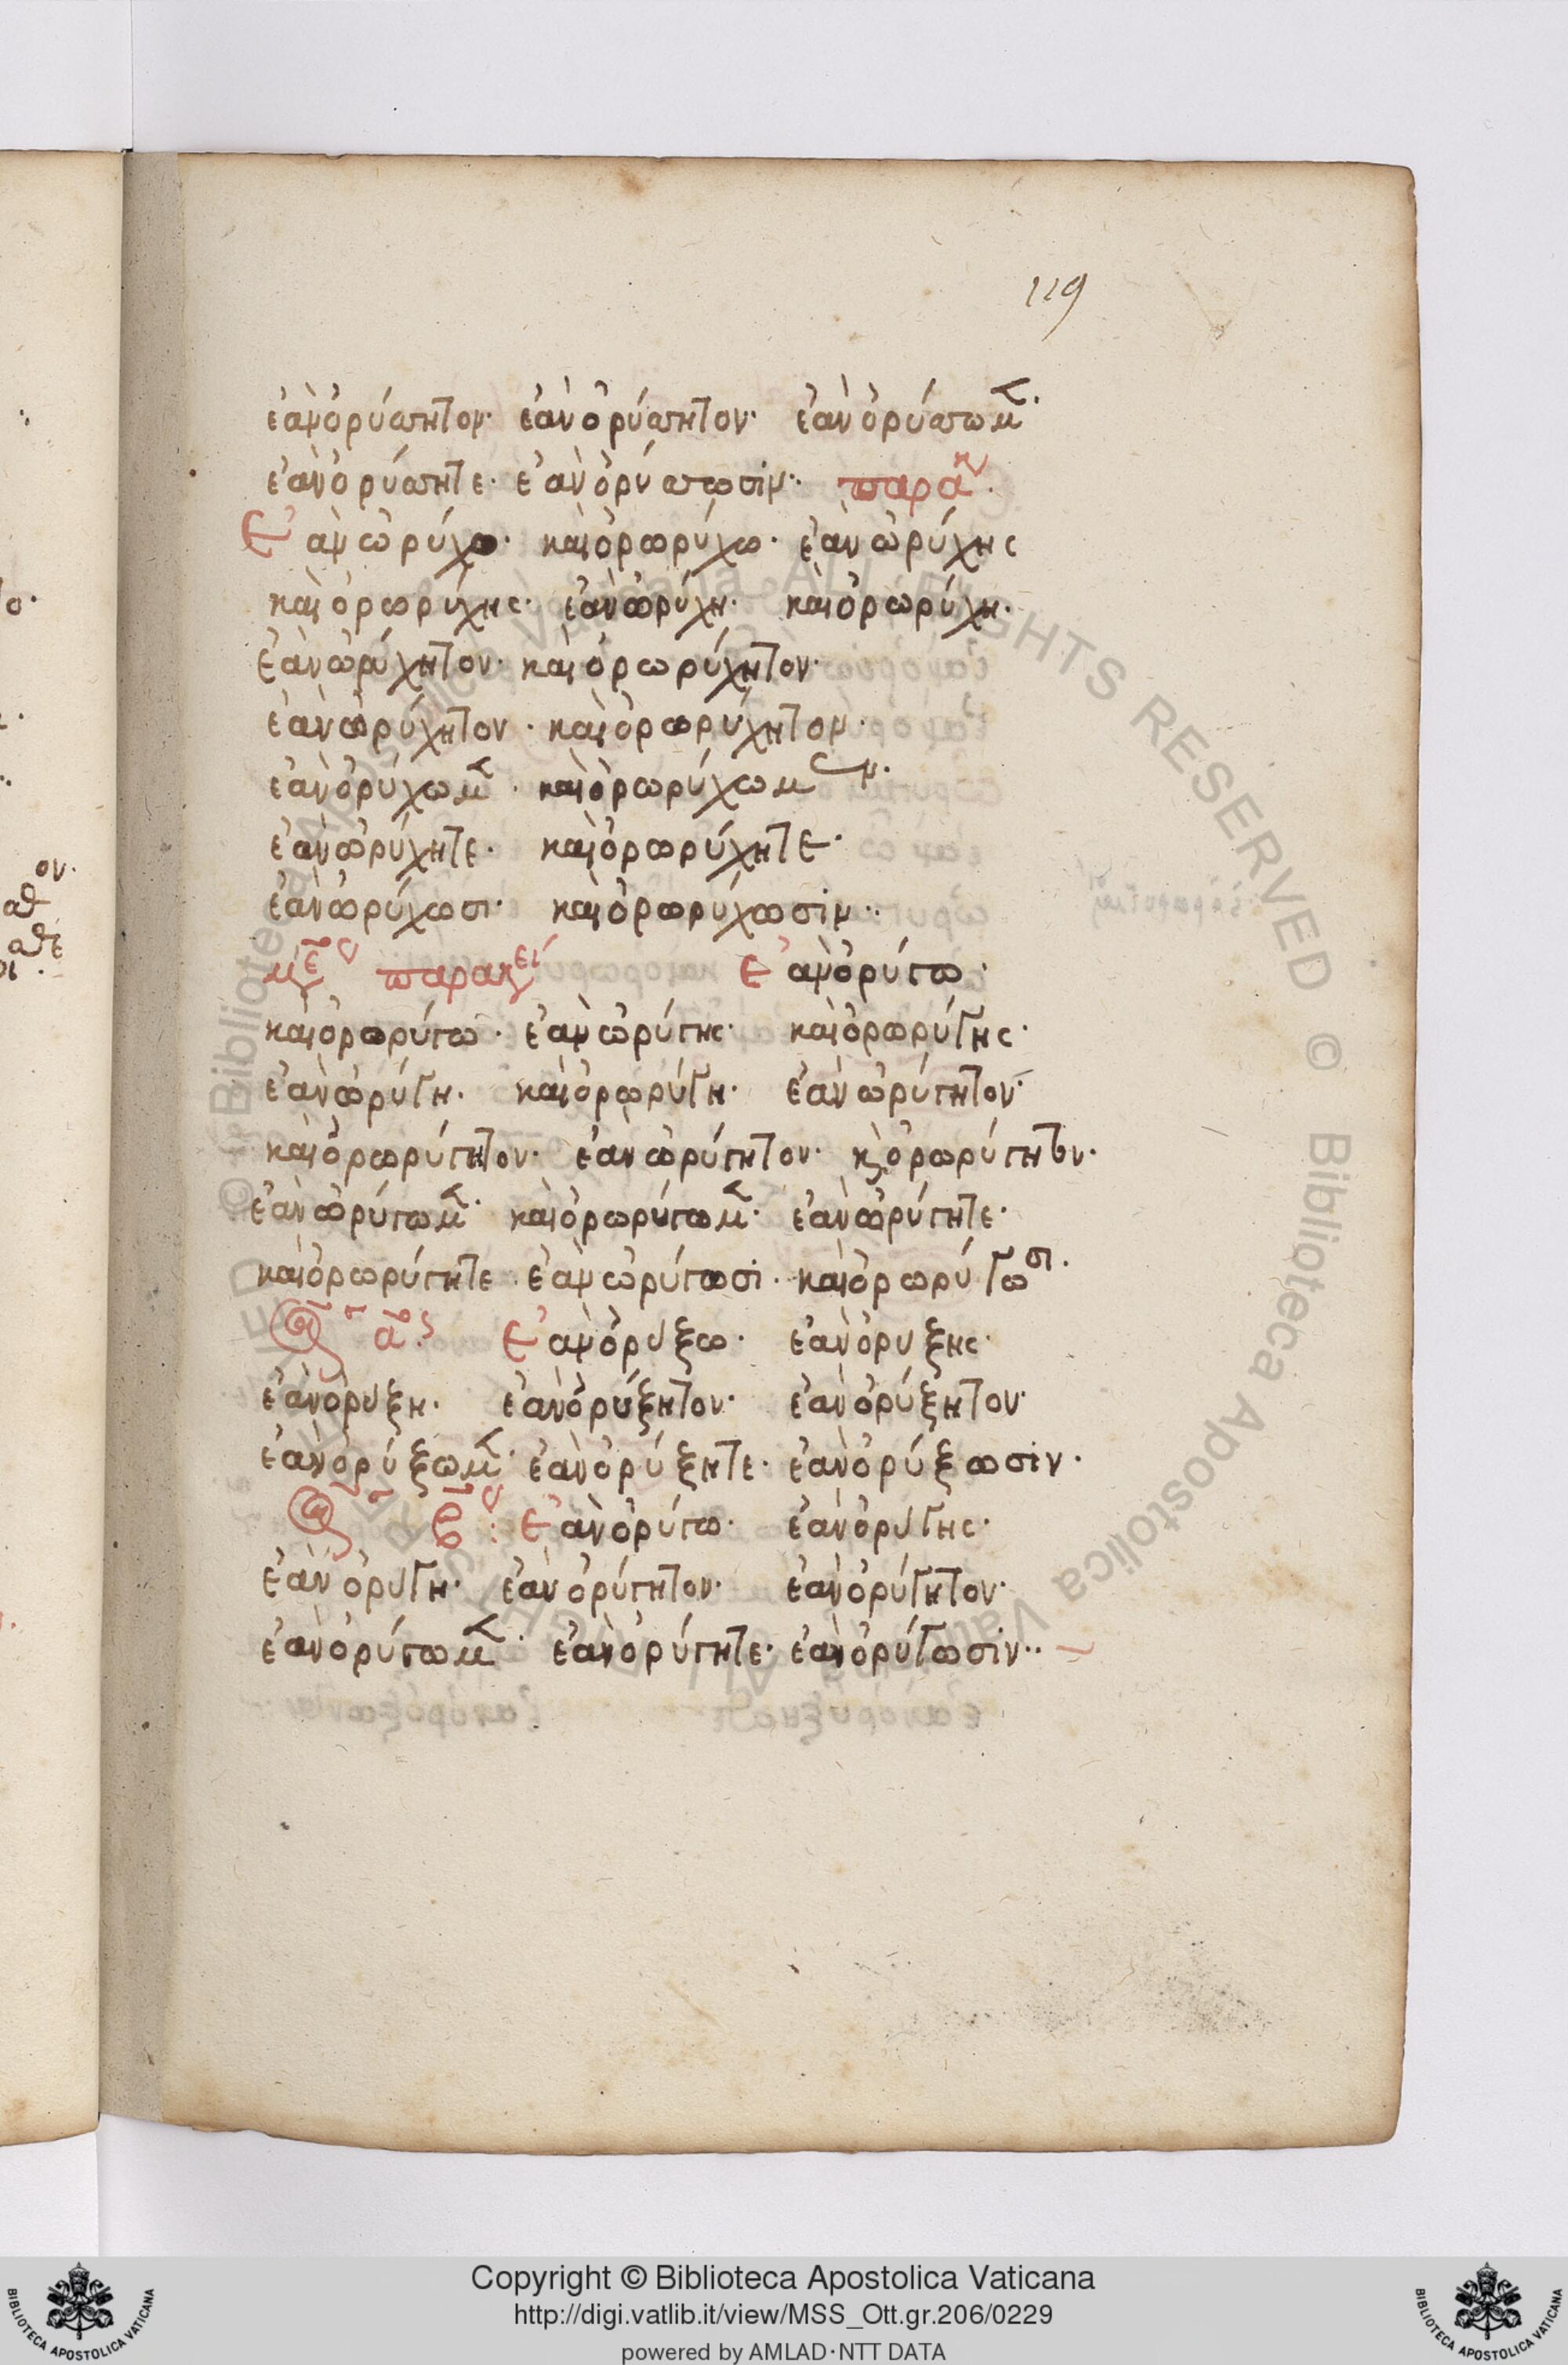 119
ἐὰν ὀρύσσητον· ἐὰν ὀρύσσητον· ἐὰν ὀρύσσωμ(εν)·
ἐὰν ὀρύσσητε· ἐὰν ὀρύσσωσιν·· παρακ
Ἐὰν ὠρύχω· καὶ ὀρωρύχω· ἐὰν ὠρύχης
καὶ ὀρωρύχης· ἐὰν ὠρύχη· καὶ ὀρωρύχη·
ἐὰν ὠρύχητον· καὶ ὀρωρύχητον·
ἐὰν ὠρύχητον· καὶ ὀρωρύχητον·
ἐὰν ὀρύχωμ(εν)· καὶ ὀρωρύχωμεν·
ἐὰν ὠρύχητε· καὶ ὀρωρύχητε·
ἐὰν ὠρύχωσι· καὶ ὀρωρύχωσιν··
μέσου παρακει Ἐὰν ὀρύγω·
καὶ ὀρωρύγω· ἐὰν ὠρύγης· καὶ ὀρωρύγης·
ἐὰν ὠρύγη· καὶ ὀρωρύγη· ἐὰν ὠρύγητον·
καὶ ὀρωρύγητον· ἐὰν ὠρύγητον· κ(αὶ) ὀρωρύγητον·
ἐὰν ὠρύγωμ(εν)· καὶ ὀρωρύγωμ(εν)· ἐὰν ὠρύγητε·
καὶ ὀρωρύγητε· ἐὰν ὠρύγωσι· καὶ ὀρωρύγωσι·
Ἐὰν ὄρυξω· ἐὰν ὄρυξης·
ἐὰν ὄρυξη· ἐὰν ὀρύξητον· ἐὰν ὀρύξητον·
ἐὰν ὀρύξωμ(εν)· ἐὰν ὀρύξητε· ἐὰν ὀρύξωσιν·
β : Ἐὰν ὀρύγω· ἐὰν ὀρυγης·
ἐὰν ὀρυγη· ἐὰν ὀρύγητον· ἐὰν ὀρύγητον·
ἐὰν ὀρύγωμ(εν)· ἐὰν ὀρύγητε· ἐὰν ὀρύγωσιν··
Copyright © Biblioteca Apostolica Vaticana
http://digi.vatlib.it/view/MSS_Ott.gr.206/0229
powered by AMLAD·NTT DATA